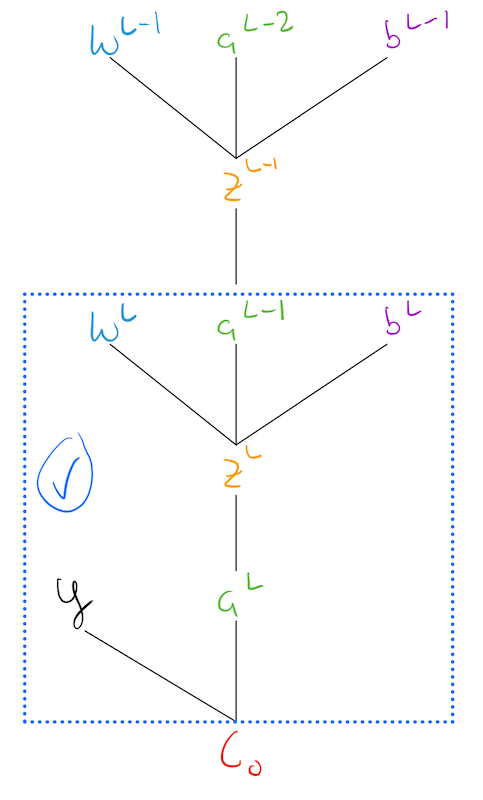 w^{L-1} a^{L-2} b^{L-1}
z^{L-1}
w^{L} a^{L-1} b^{L}
z^{L}
a^{L}
y
C_0